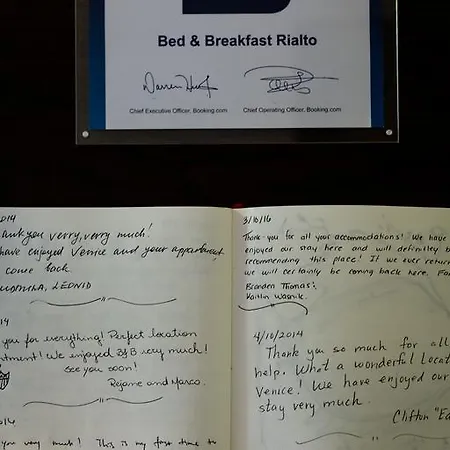 Bed & Breakfast Rialto
Chief Executive Officer, Booking.com
Chief Operating Officer, Booking.com
2014
ank you verry, verry much!
have enjoyed Venice and your appartment,
come back
LEONID
14
you for everything! Perfect location
ntment! We enjoyed B&B very much!
See you soon!
Rejane and Marco.
2014
you very much! This is my first time to
3/10/16
Thank you for all your accommodations! We have
enjoyed our stay here and will definitley b
recommending this place! If we ever retur
we will certainly be coming back here. Fo
Branden Thomas;
Kaitlin
4/10/2014
Thank you so much for all
help. What a wonderful locat
Venice! We have enjoyed our
stay very much.
Clifton "Ea